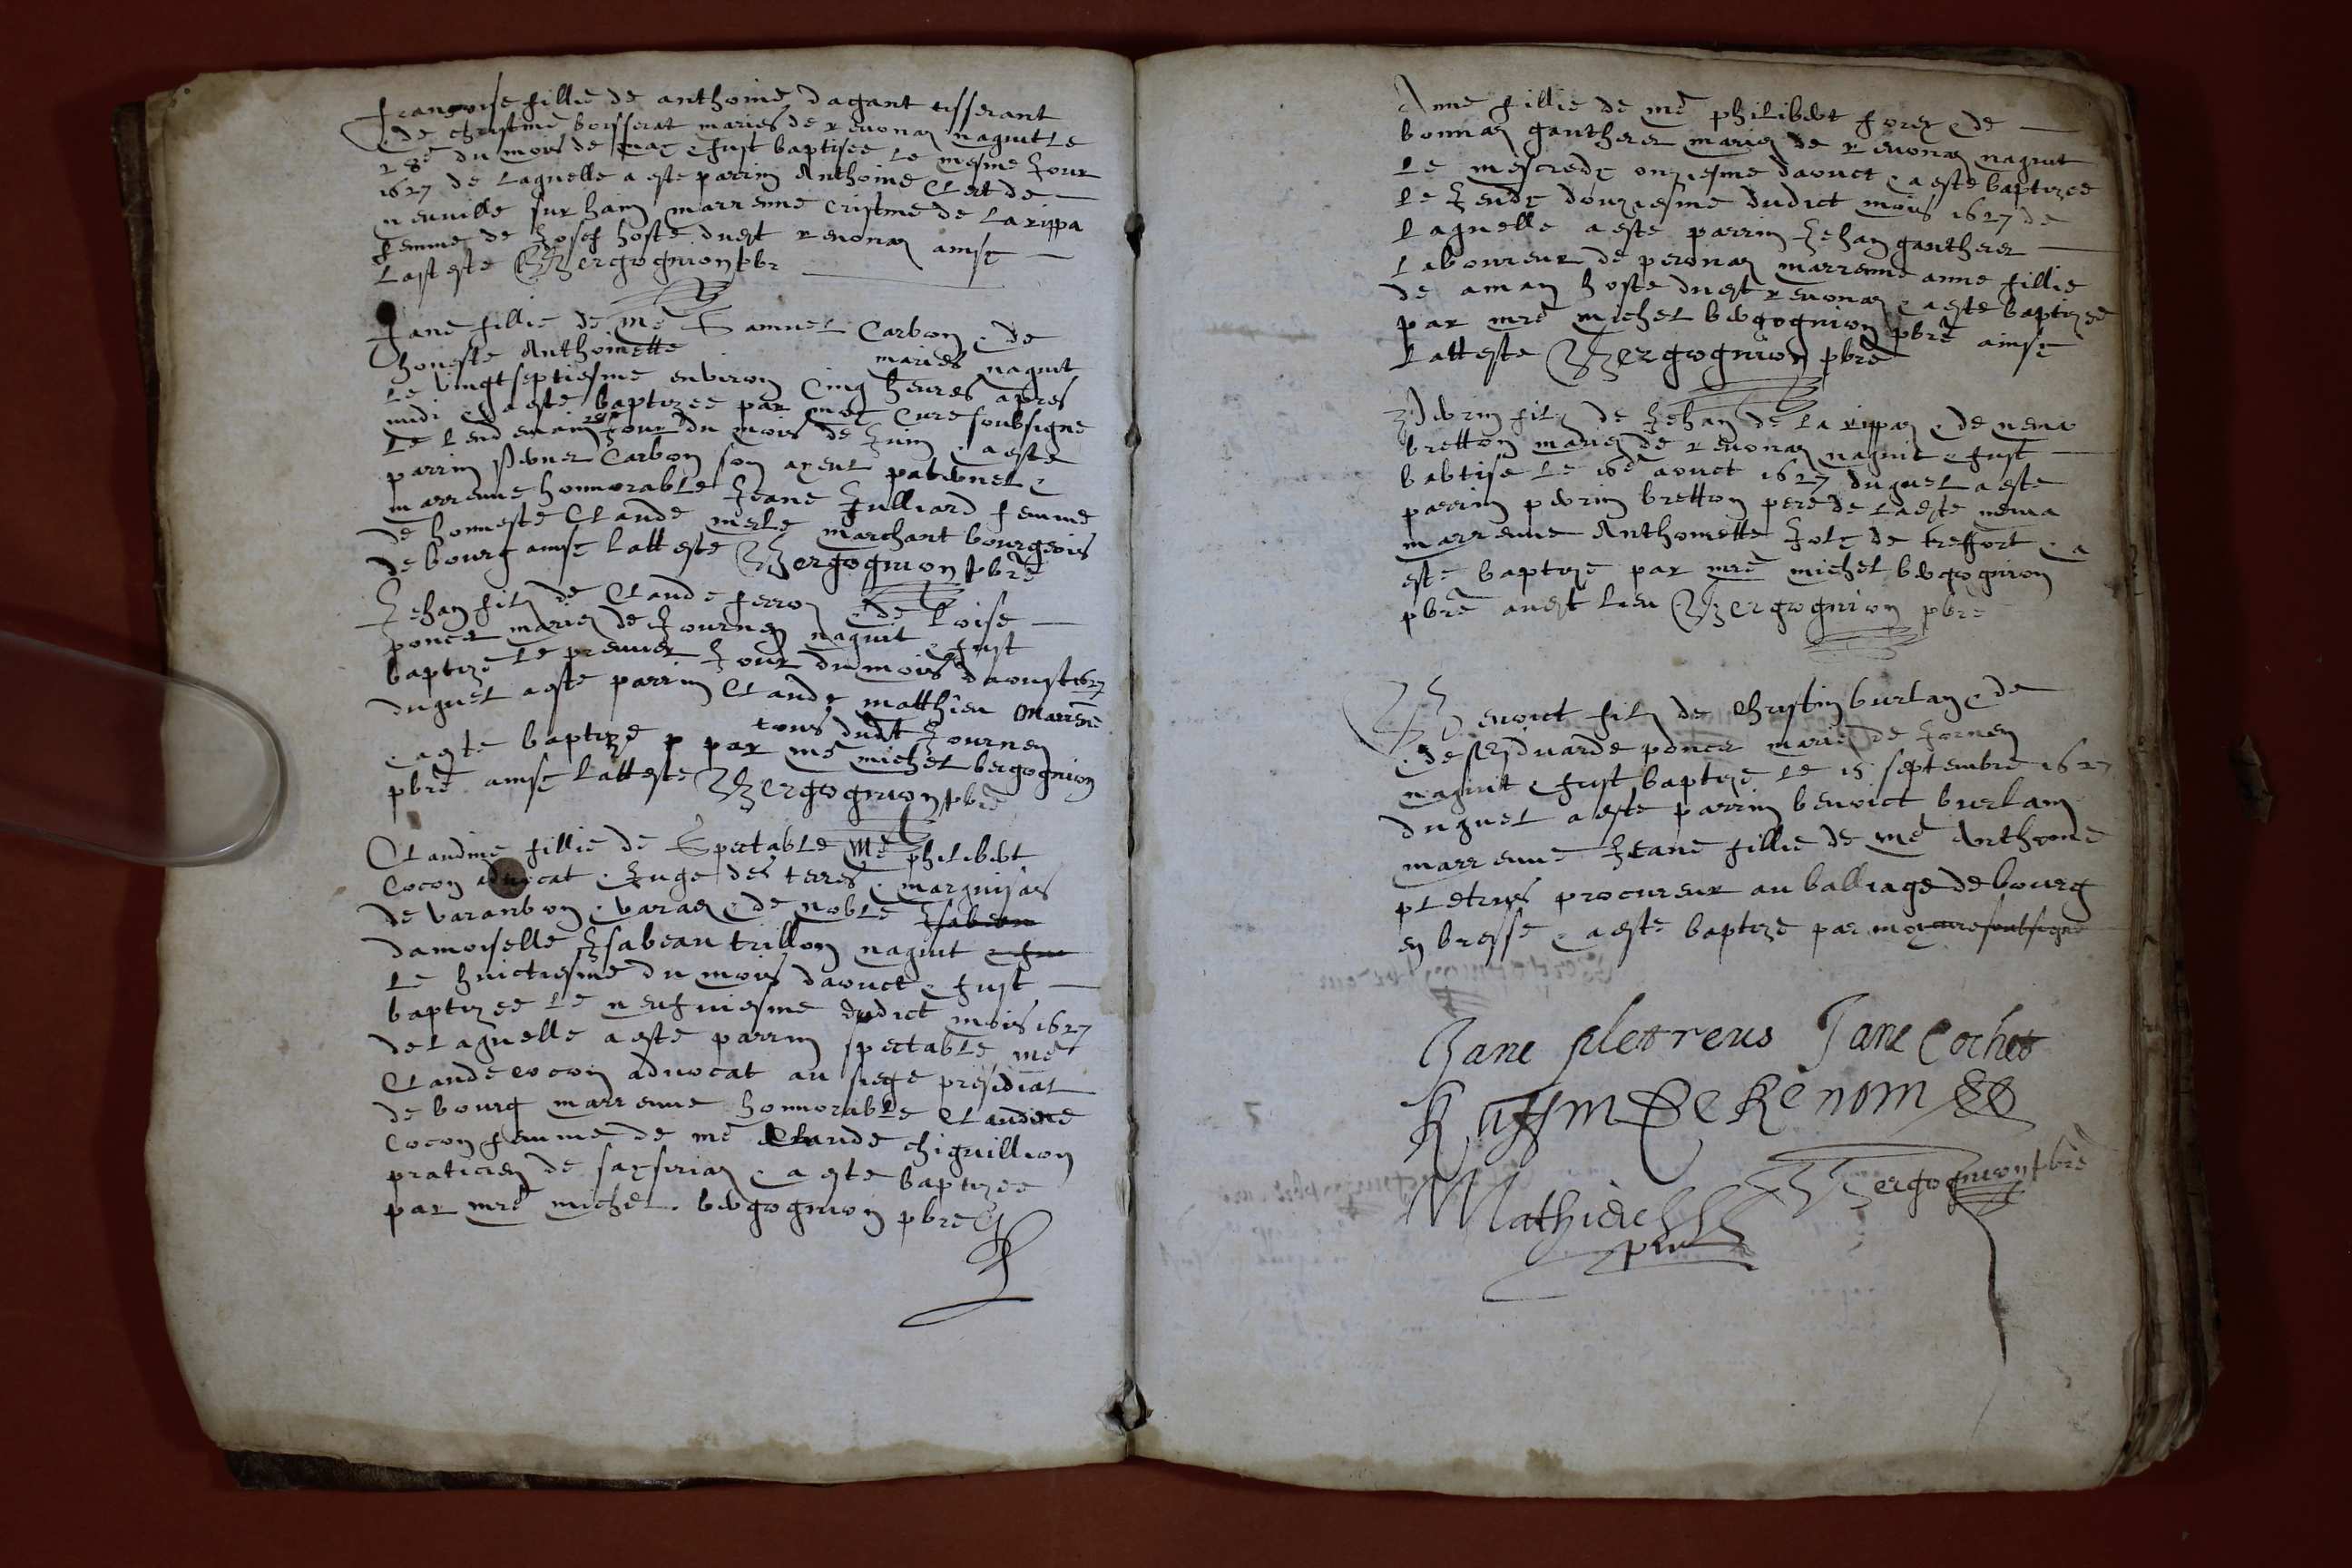 francoise fillie de anthoine dagant tisserant
& de christine boisserat maries de revonas naquit le
28e du mois de may & fust baptisee le mesme Jour
1627 de laquelle a este parrin Anthoine Clert de
neuville sur hain marrenne cristine de la rippa
femme de Josef hoste dudt revonas ainsy
last este Bergognion pbr
Jane fillie de me Samuel Carbon & de
honeste Anthoinette maries naquit
le vingtseptiesme environ cinq heures apres
midi & a este baptizee par moy cure soubsigne
le lendemain 28e Jour du mois de Juin & a este
parrin Carbon son ayeul paternel &
marrenne honnorable Jeane Julliard femme
de honneste Claude merle marchant bourgeois
de bourg ainsy latteste Bergognion pbre
Jehan filz de Claude ferroz & de Loise
poncet maries de Journen naquit & fust
baptize le premier Jour du mois daoust 1627
duquel a este parrin Claude matthieu Marrene
tous dudt Journen
& a este baptize p par me michel bergognion
pbre ainsy latteste Bergognion pbre
Claudine fillie de Spectable Me philibert
Cocon advocat & Juge des terres & marquisas
de varanbon & varax & de noble Isabeau
damoiselle Isabeau trillon naquit & fu
le huictiesme du mois daouct & fust
baptizee le neufviesme dudict mois 1627
de laquelle a este parrin spectable me
Claude cocon advocat au siege presidial
de bourg marrenne honnorable Claudine
Cocon femme de me Claude chiquillion
praticien de & a este baptizee
par mre michel bergognion pbre
Anne fillie de me philibert forez & de
bonnaz gautherer maries de revonaz naquit
le mescredy onziesme daouct & a este baptizee
le Jeudy douziesme dudict mois 1627 de
laquelle a este parrin Jehan gautherer
laboureur de peronaz marrenne anne fillie
de aman hoste dudt revonaz & a este baptizee
par mre michel bergognion pbre ainsy
latteste Bergognion pbre
Perrin filz de Jehan de la rippaz & de nema
bretton maries de revonaz naquit & fust
babtise le 16e aouct 1627 duquel a este
parrin perrin bretton pere de ladte nema
marrenne Anthoinette Joly de treffort & a
este baptize par mre michel bergognion
pbre audt lieu Bergognion pbre
Benoict filz de christin burlan & de
& de Esduarde poncet maries de Jornen
naquit & fust baptize le 15 septembre 1627
duquel a este parrin benoict burlam
marrenne Jeane fillie de me Anthoine
pletrus procureur au balliage de bourg
en bresse & a este baptize par moy cure soubsigne
Jane pletreus Jane Cochet
Bergognion pbre
Mathieu